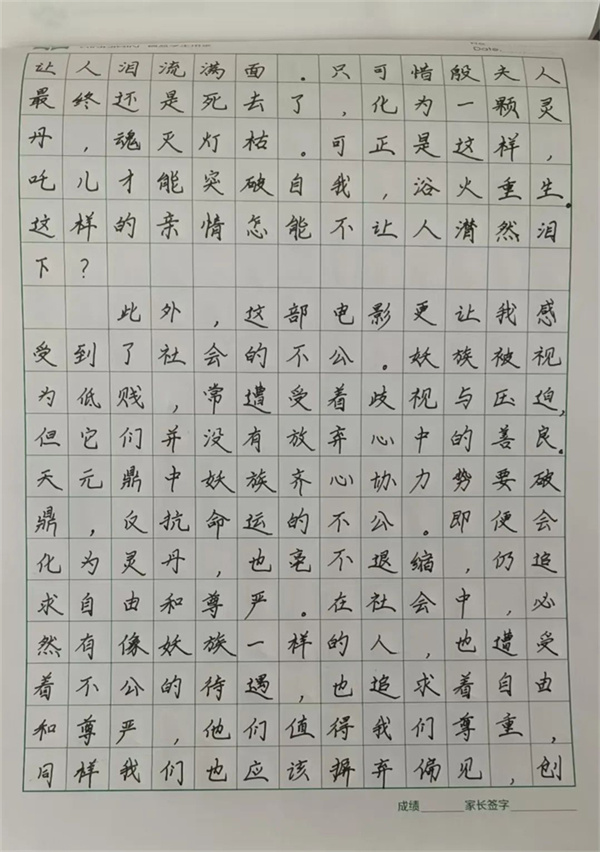 Date:
让人泪流满面。只可惜殷夫人
最终还是死去了，化为一颗灵
丹，魂灭灯枯。可正是这样，
吒儿才能突破自我，浴火重生。
这样的亲情怎能不让人潸然泪
下？
此外，这部电影更让我感
受到了社会的不公。妖族被视
为低贱，常遭受着歧视与压迫，
但它们并没有放弃心中的善良。
天元鼎中妖族齐心协力势要破
鼎，反抗命运的不公。即便会
化为灵丹，也毫不退缩，仍追
求自由和尊严。在社会中，必
然有像妖族一样的人，也遭受
着不公的待遇，也追求着自由
和尊严，他们值得我们尊重，
同样我们也应该摒弃偏见，创
成绩 家长签字